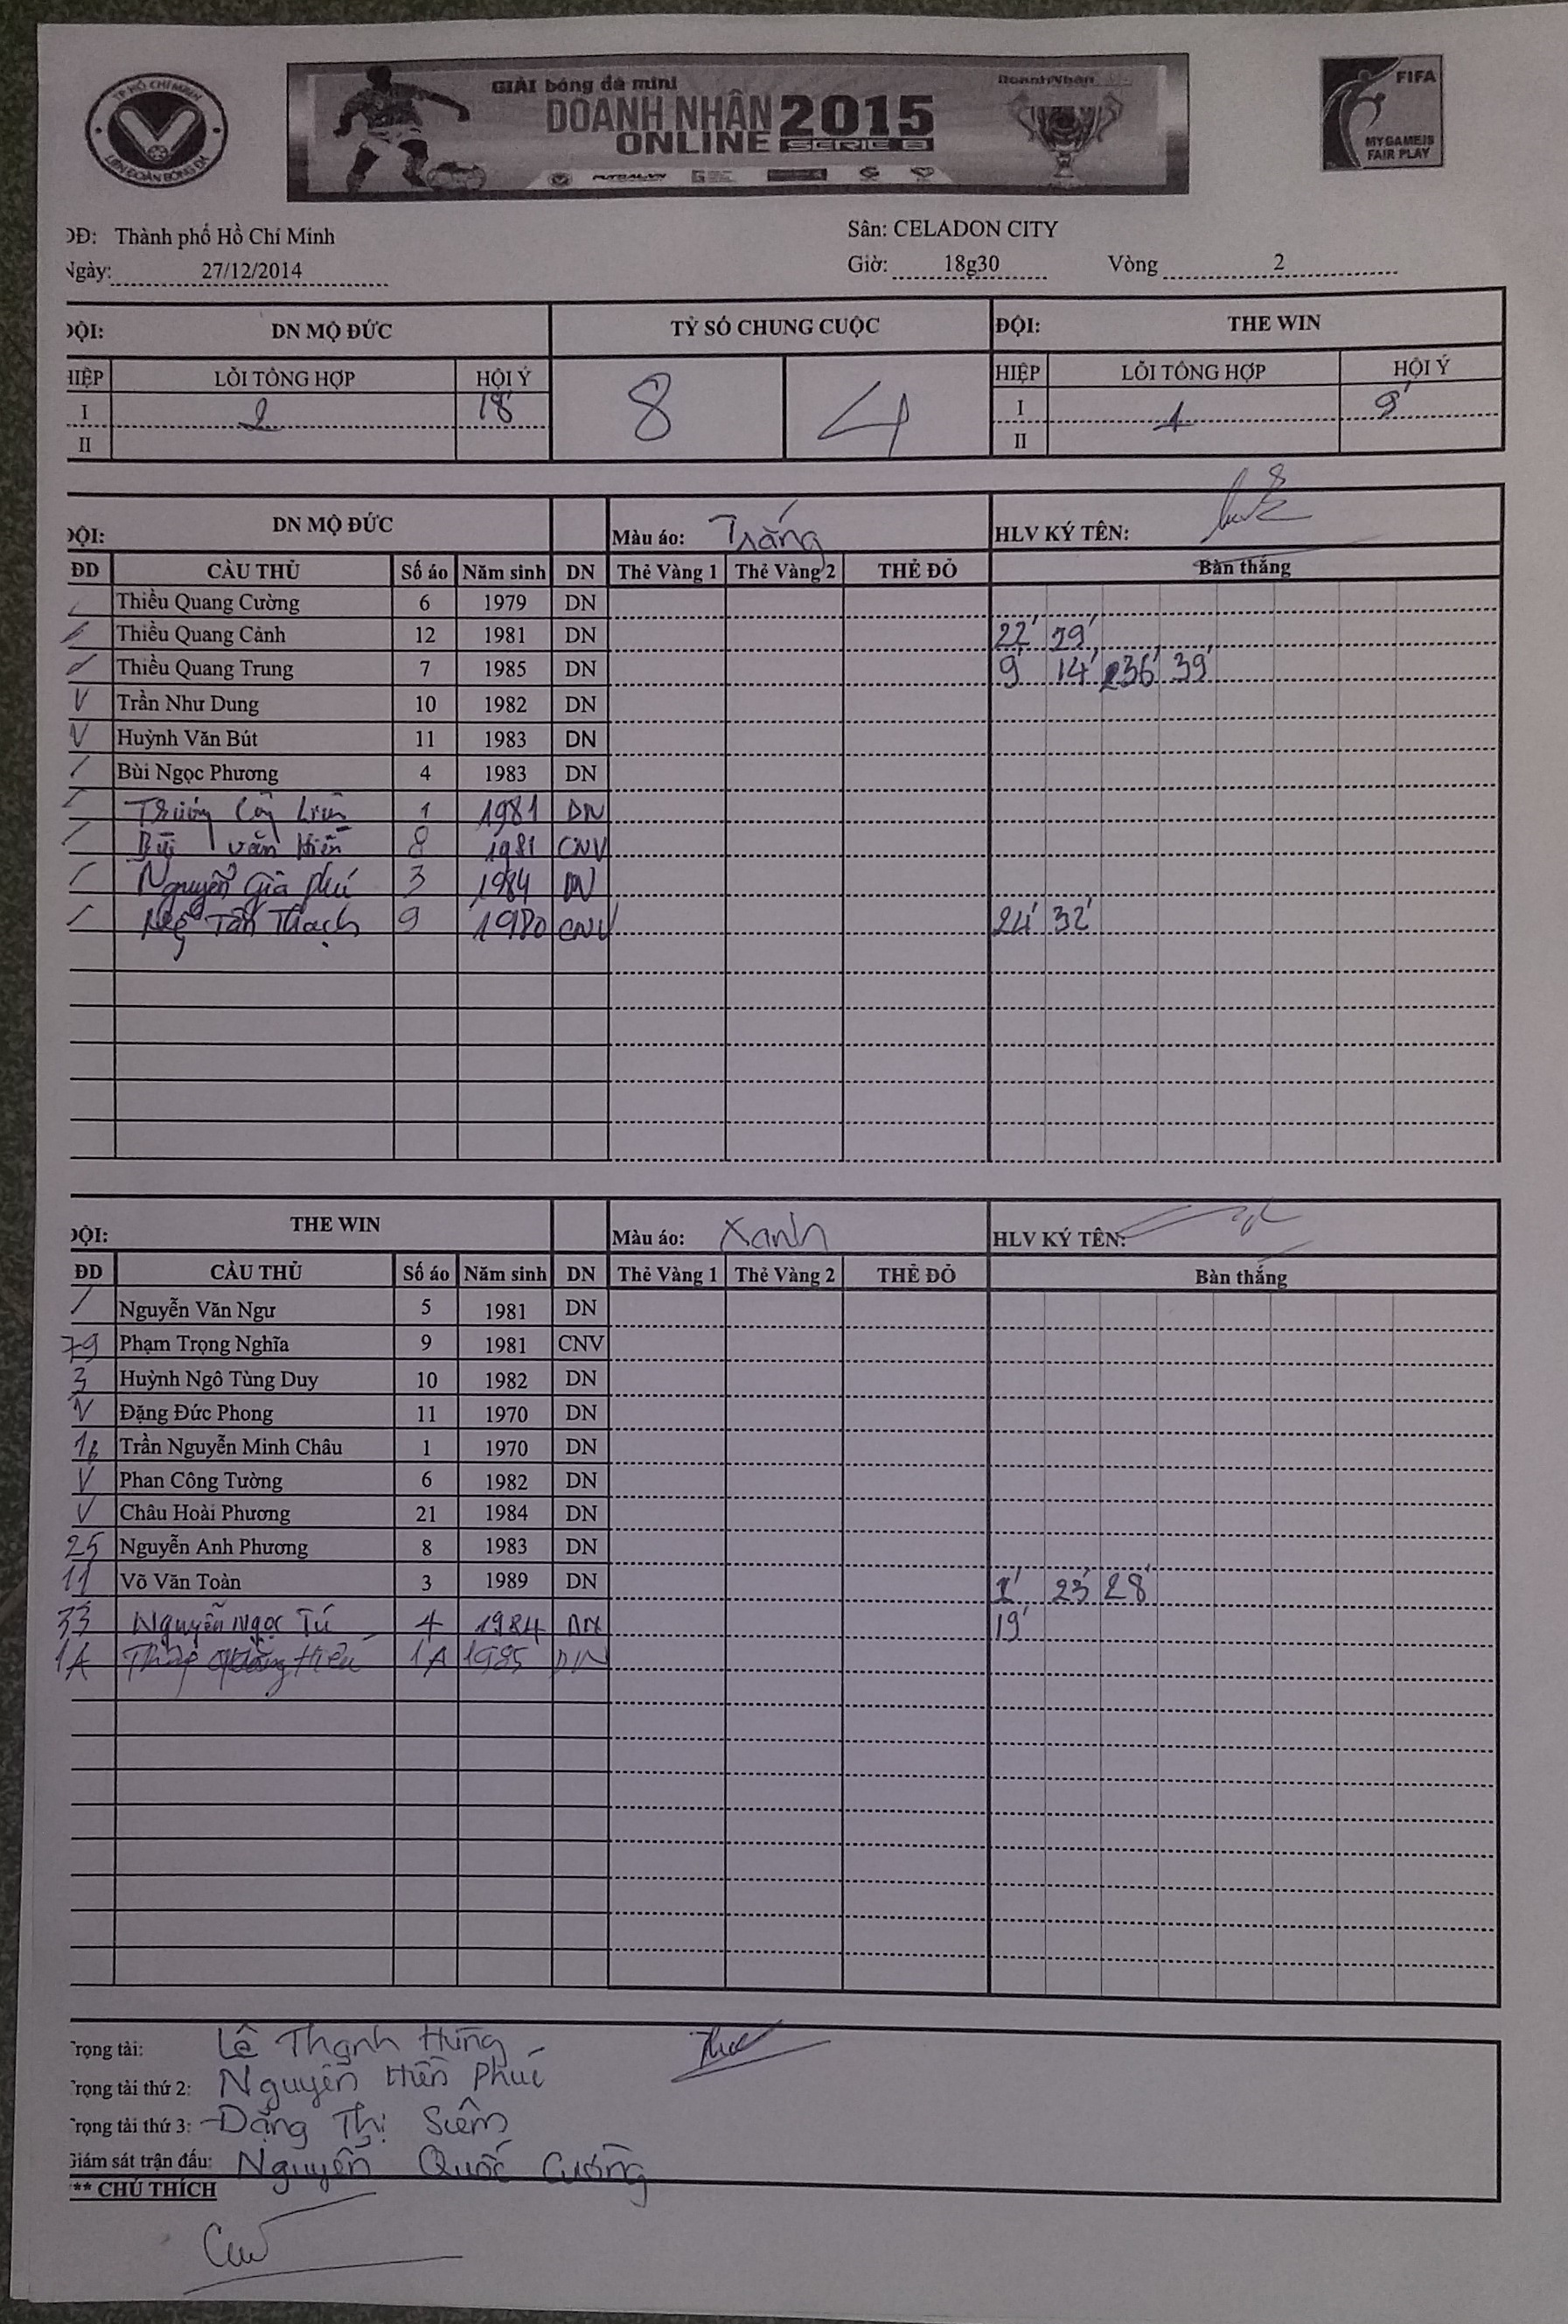 TP HỒ CHÍ MINH
LIÊN ĐOÀN BÓNG ĐÁ
GIẢI bóng đá mini
DOANH NHÂN 2015
ONLINE SERIE 8
DoanhNhân
FUTSAL.VN
FIFA
MY GAME IS
FAIR PLAY
ĐĐ: Thành phố Hồ Chí Minh Sân: CELADON CITY
Ngày: 27/12/2014 Giờ: 18g30 Vòng 2
ĐỘI: DN MỘ ĐỨC TỶ SỐ CHUNG CUỘC ĐỘI: THE WIN
HIỆP LỖI TỔNG HỢP HỘI Ý HIỆP LỖI TỔNG HỢP HỘI Ý
I 2 18' 8 4 I 1 9'
II II
ĐỘI: DN MỘ ĐỨC Màu áo: Trắng HLV KÝ TÊN:
ĐD CẦU THỦ Số áo Năm sinh DN Thẻ Vàng 1 Thẻ Vàng 2 THẺ ĐỎ Bàn thắng
Thiều Quang Cường 6 1979 DN
Thiều Quang Cảnh 12 1981 DN 22' 29'
Thiều Quang Trung 7 1985 DN 9' 14' 36' 39'
V Trần Như Dung 10 1982 DN
V Huỳnh Văn Bút 11 1983 DN
Bùi Ngọc Phương 4 1983 DN
1 1981 DN
Bùi Văn Hiền 8 1981 CNV
Nguyễn Gia Phú 3 1984 DN
Tấn Thạch 9 1980 CNV 24' 32'
ĐỘI: THE WIN Màu áo: Xanh HLV KÝ TÊN:
ĐD CẦU THỦ Số áo Năm sinh DN Thẻ Vàng 1 Thẻ Vàng 2 THẺ ĐỎ Bàn thắng
Nguyễn Văn Ngư 5 1981 DN
79 Phạm Trọng Nghĩa 9 1981 CNV
3 Huỳnh Ngô Tùng Duy 10 1982 DN
V Đặng Đức Phong 11 1970 DN
Trần Nguyễn Minh Châu 1 1970 DN
V Phan Công Tường 6 1982 DN
V Châu Hoài Phương 21 1984 DN
25 Nguyễn Anh Phương 8 1983 DN
11 Võ Văn Toàn 3 1989 DN 23' 28'
33 Nguyễn Ngọc Tú 4 1984 DN 19'
1A Hiếu 1A 1985 DN
Trọng tài: Lê Thanh Hùng
Trọng tài thứ 2: Nguyễn Hiền Phúc
Trọng tài thứ 3: Đặng Thị Siêm
Giám sát trận đấu: Nguyễn Quốc Cường
** CHÚ THÍCH